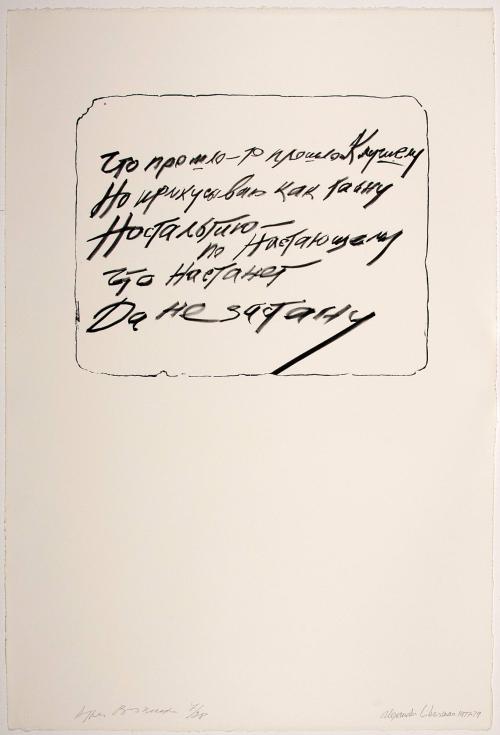 Что прошло – то прошло К лучшему
Но прикусываю как тайну
Ностальгию –
по Настающему
Что Настанет
Да не застану
Alexander Liberman 1977-79